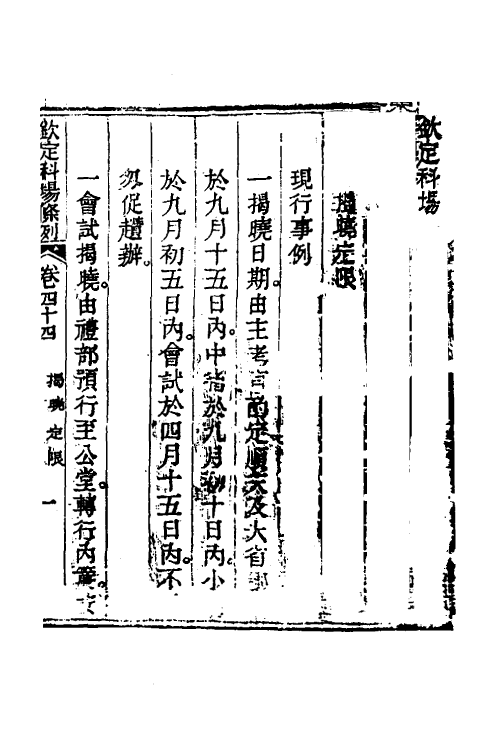 欽定科場
揭曉定限
現行事例
一揭曉日期由主考官酌定順天及大省
於九月十五日內中省於九月初十日內小
於九月初五日內會試於四月十五日內不
忽促趲辦
一會試揭曉由禮部預行至公堂轉行內簾
欽定科場條例 卷四十四 揭曉定限 一